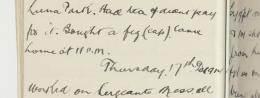 Luna Park. Had tea & didnt pay
for it. Bought a fez (cap). Came
home at 11 P.M.
Thursday, 17th
Worked on Sergeants Mess all